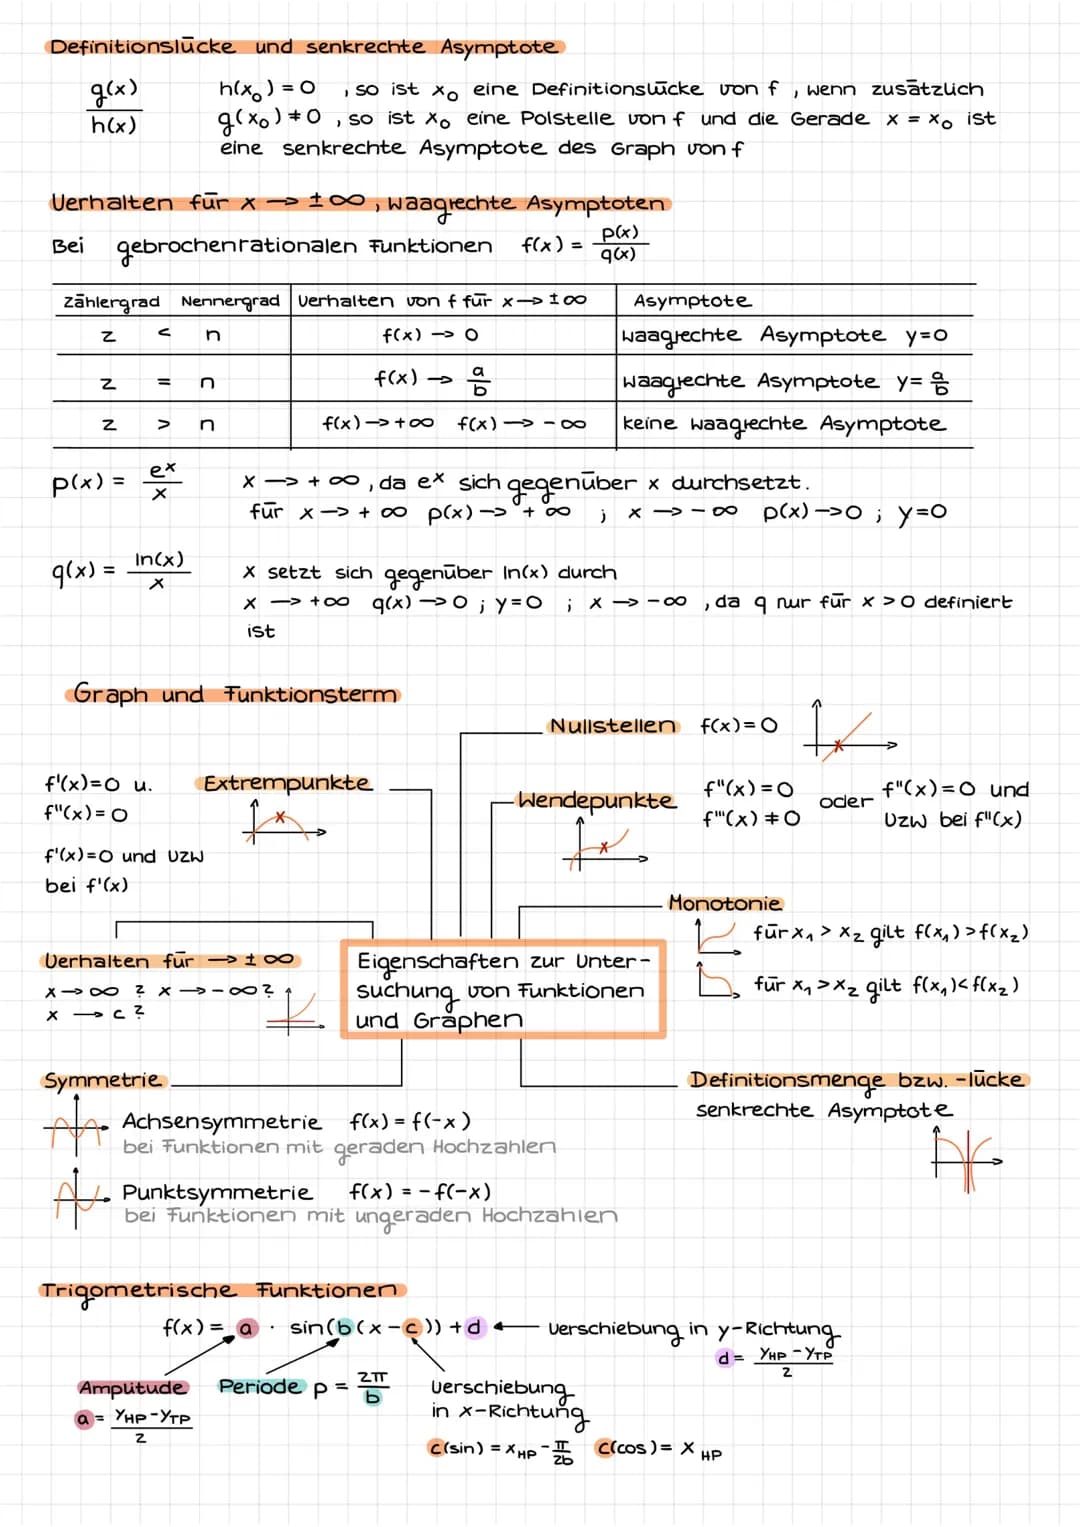 Definitionslücke und senkrechte Asymptote
g(x)
h(x)
h(x₀) = 0 , so ist x₀ eine Definitionslücke von f , wenn zusätzlich
g(x₀) ≠ 0 , so ist x₀ eine Polstelle von f und die Gerade x = x₀ ist
eine senkrechte Asymptote des Graph von f
Verhalten für x → ±∞, waagrechte Asymptoten
Bei gebrochenrationalen Funktionen f(x) = p(x)/q(x)
Zählergrad Nennergrad Verhalten von f für x→ ±∞ Asymptote
z < n f(x) → 0 waagrechte Asymptote y=0
z = n f(x) → a/b waagrechte Asymptote y= a/b
z > n f(x)→+∞ f(x)→ -∞ keine waagrechte Asymptote
p(x) = eˣ/x x → + ∞, da eˣ sich gegenüber x durchsetzt.
für x → + ∞ p(x) → + ∞ ; x → - ∞ p(x) →0 ; y=0
q(x) = ln(x)/x x setzt sich gegenüber ln(x) durch
x → +∞ q(x) → 0 ; y=0 ; x → -∞ , da q nur für x >0 definiert
ist
Graph und Funktionsterm
Nullstellen f(x)=0
Extrempunkte
f'(x)=0 u.
f''(x)=0
f'(x)=0 und VZW
bei f'(x)
Wendepunkte
f''(x)=0
f'''(x) ≠ 0
oder
f''(x)=0 und
VZW bei f''(x)
Monotonie
für x₁ > x₂ gilt f(x₁) > f(x₂)
für x₁ > x₂ gilt f(x₁) < f(x₂)
Verhalten für → ±∞
x → ∞ ? x → -∞ ?
x → c ?
Eigenschaften zur Unter-
suchung von Funktionen
und Graphen
Symmetrie
Achsensymmetrie f(x) = f(-x)
bei Funktionen mit geraden Hochzahlen
Punktsymmetrie f(x) = -f(-x)
bei Funktionen mit ungeraden Hochzahlen
Definitionsmenge bzw. -lücke
senkrechte Asymptote
Trigometrische Funktionen
f(x) = a · sin(b(x-c)) + d ← Verschiebung in y-Richtung
d = yHP - yTP / 2
Amplitude
a = yHP - yTP / 2
Periode p = 2π/b
Verschiebung
in x-Richtung
c(sin) = xHP - π/2b c(cos) = x HP